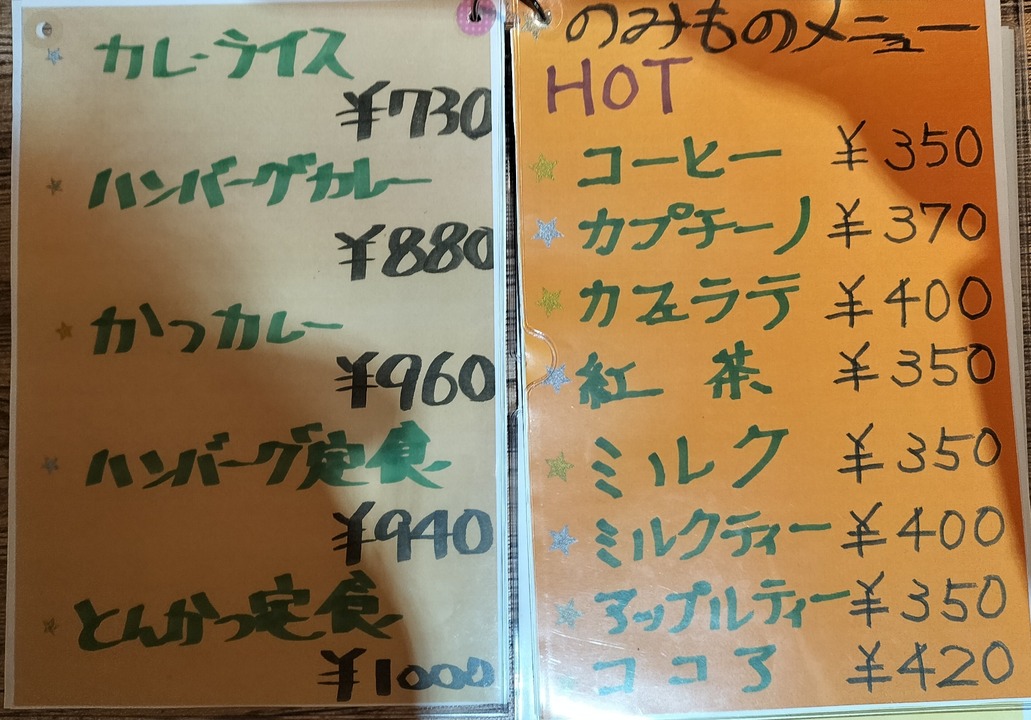 カレーライス
¥730
ハンバーグカレー
¥880
かつカレー
¥960
ハンバーグ定食
¥940
とんかつ定食
¥1000
のみものメニュー
HOT
コーヒー ¥350
カプチーノ ¥370
カフェラテ ¥400
紅 茶 ¥350
ミルク ¥350
ミルクティー ¥400
アップルティー ¥350
ココア ¥420